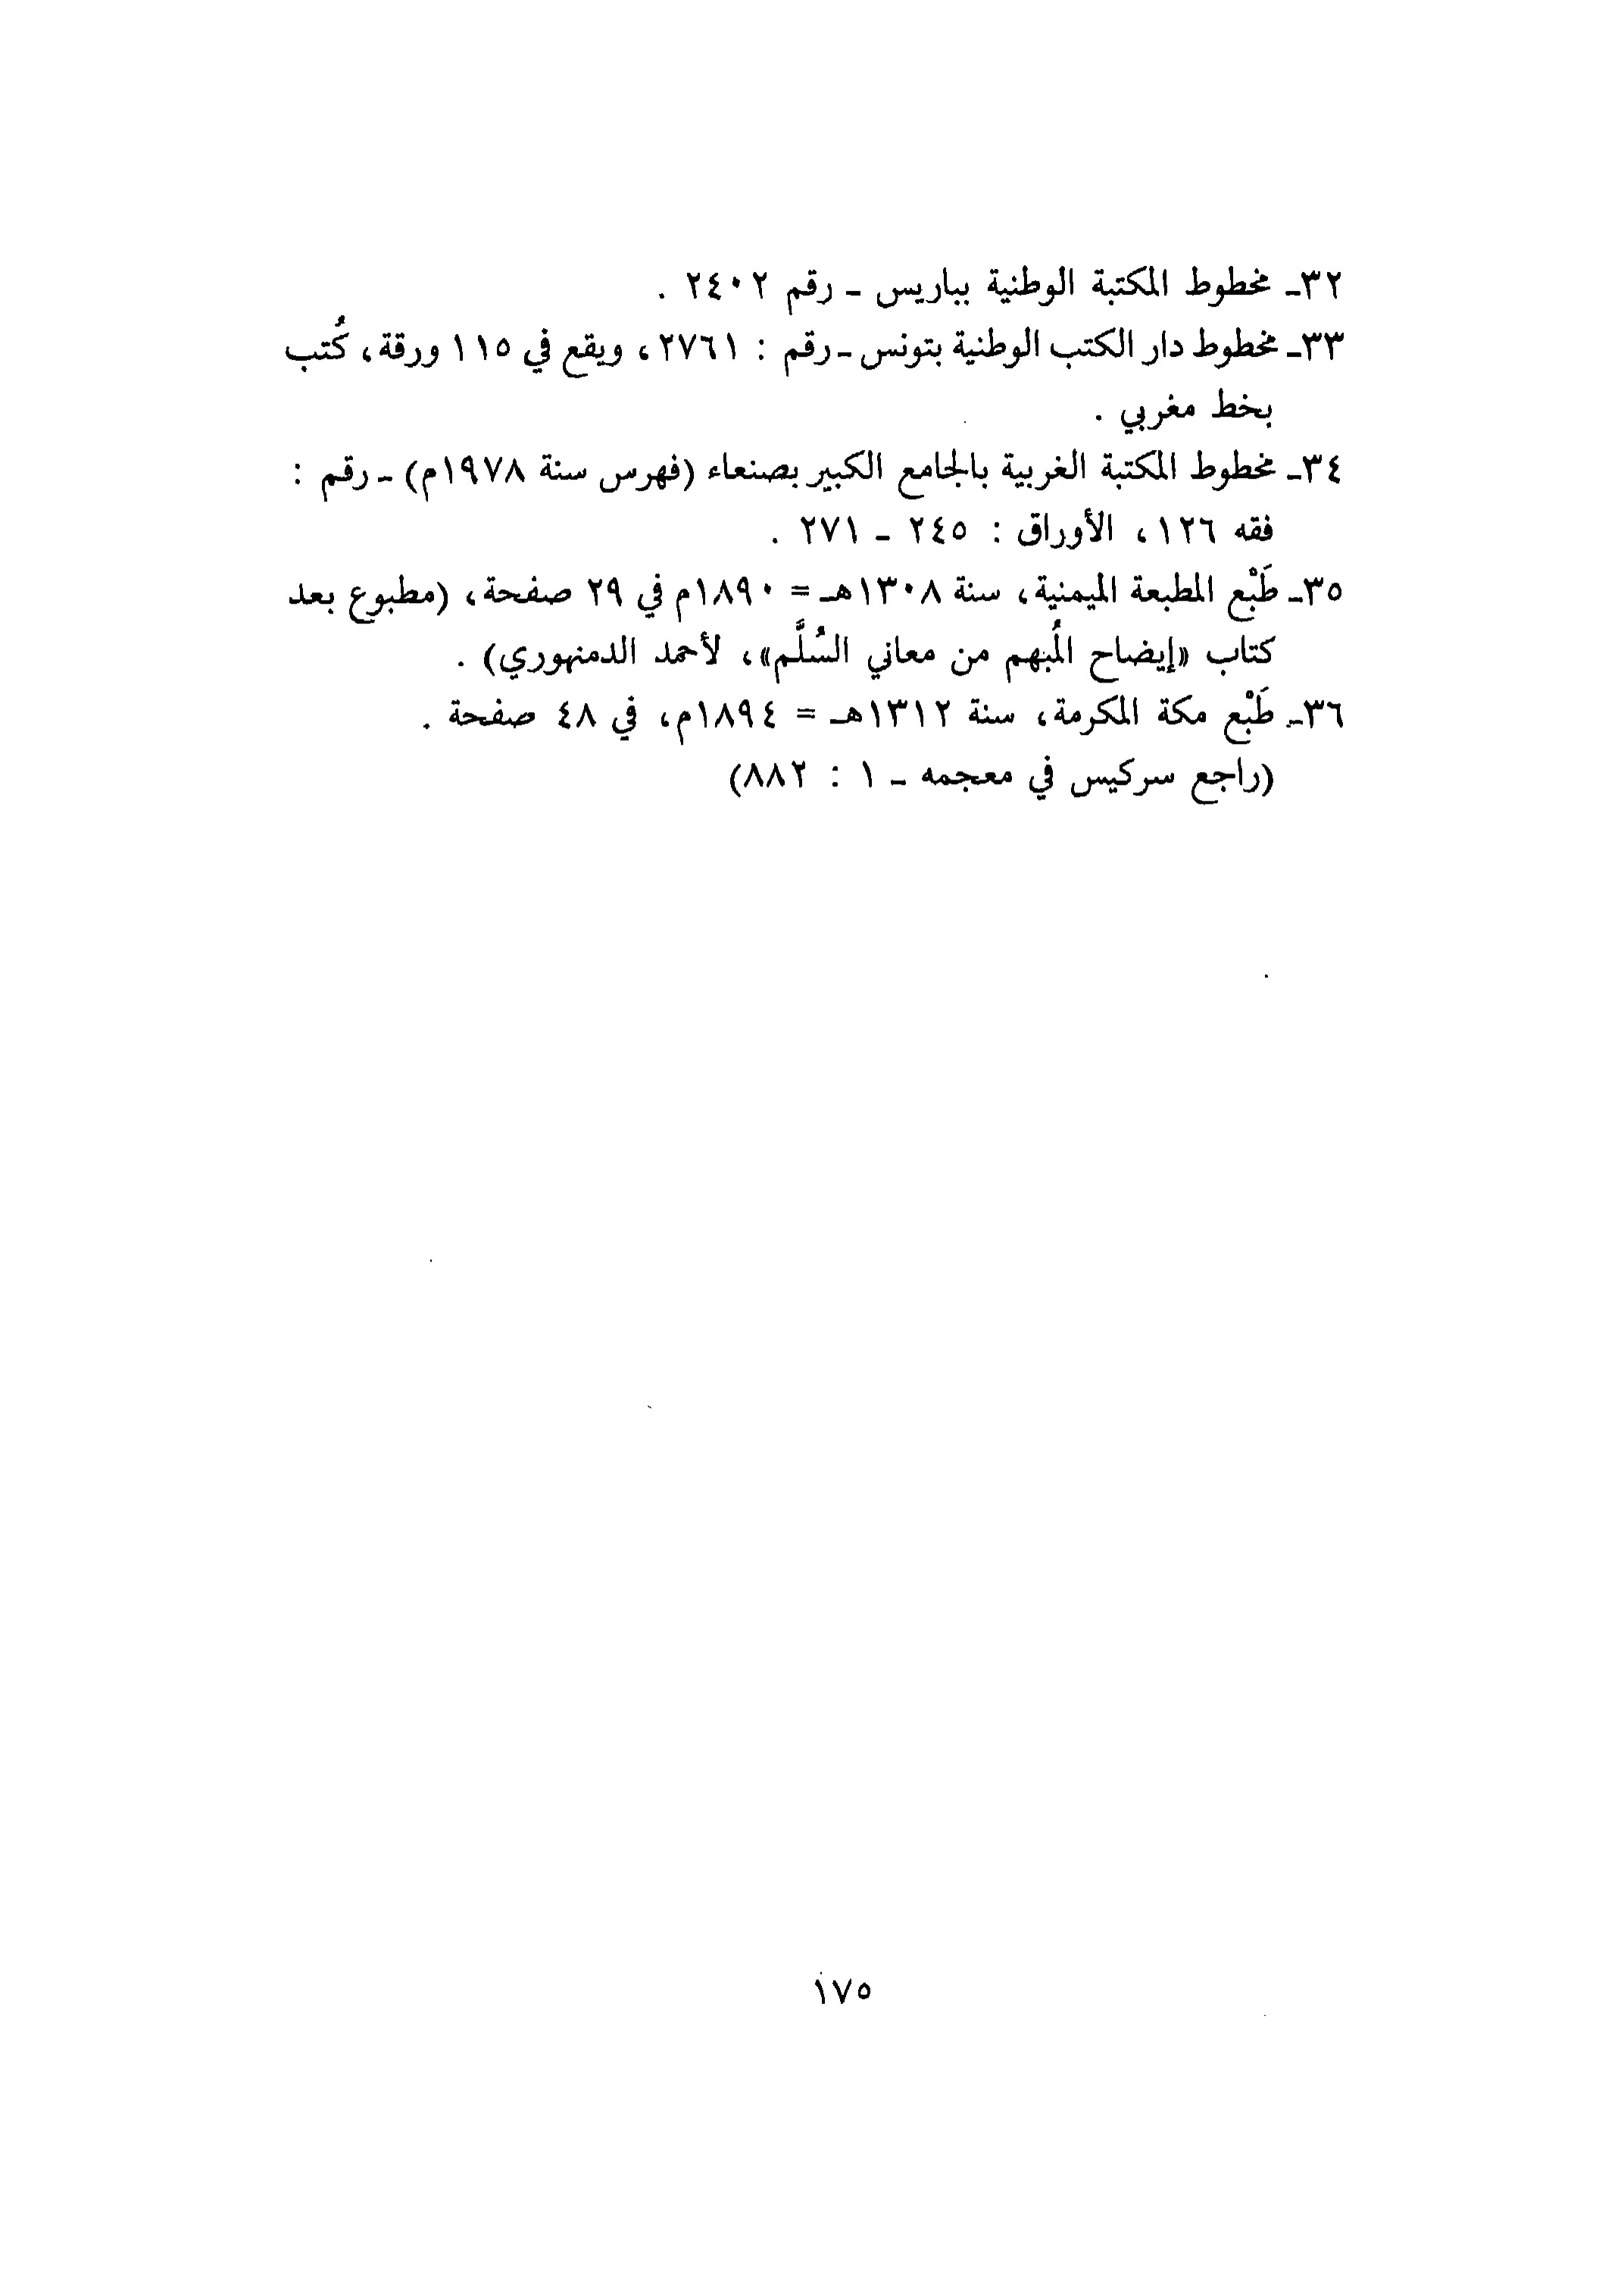 ٣٢ـ مخطوط المكتبة الوطنية بباريس ـ رقم ٢٤٠٢ .
٣٣ـ مخطوط دار الكتب الوطنية بتونس ـ رقم : ٢٧٦١، ويقع في ١١٥ ورقة، كُتب
بخط مغربي .
٣٤ـ مخطوط المكتبة الغربية بالجامع الكبير بصنعاء (فهرس سنة ١٩٧٨م) ـ رقم :
فقه ١٢٦، الأوراق : ٢٤٥ ـ ٢٧١ .
٣٥ـ طَبْع المطبعة الميمنية، سنة ١٣٠٨هـ = ١٨٩٠م في ٢٩ صفحة، (مطبوع بعد
كتاب «إيضاح المُبهم من معاني السُلَّم»، لأحمد الدمنهوري) .
٣٦ـ طَبْع مكة المكرمة، سنة ١٣١٢هـ = ١٨٩٤م، في ٤٨ صفحة .
(راجع سركيس في معجمه ـ ١ : ٨٨٢)
١٧٥